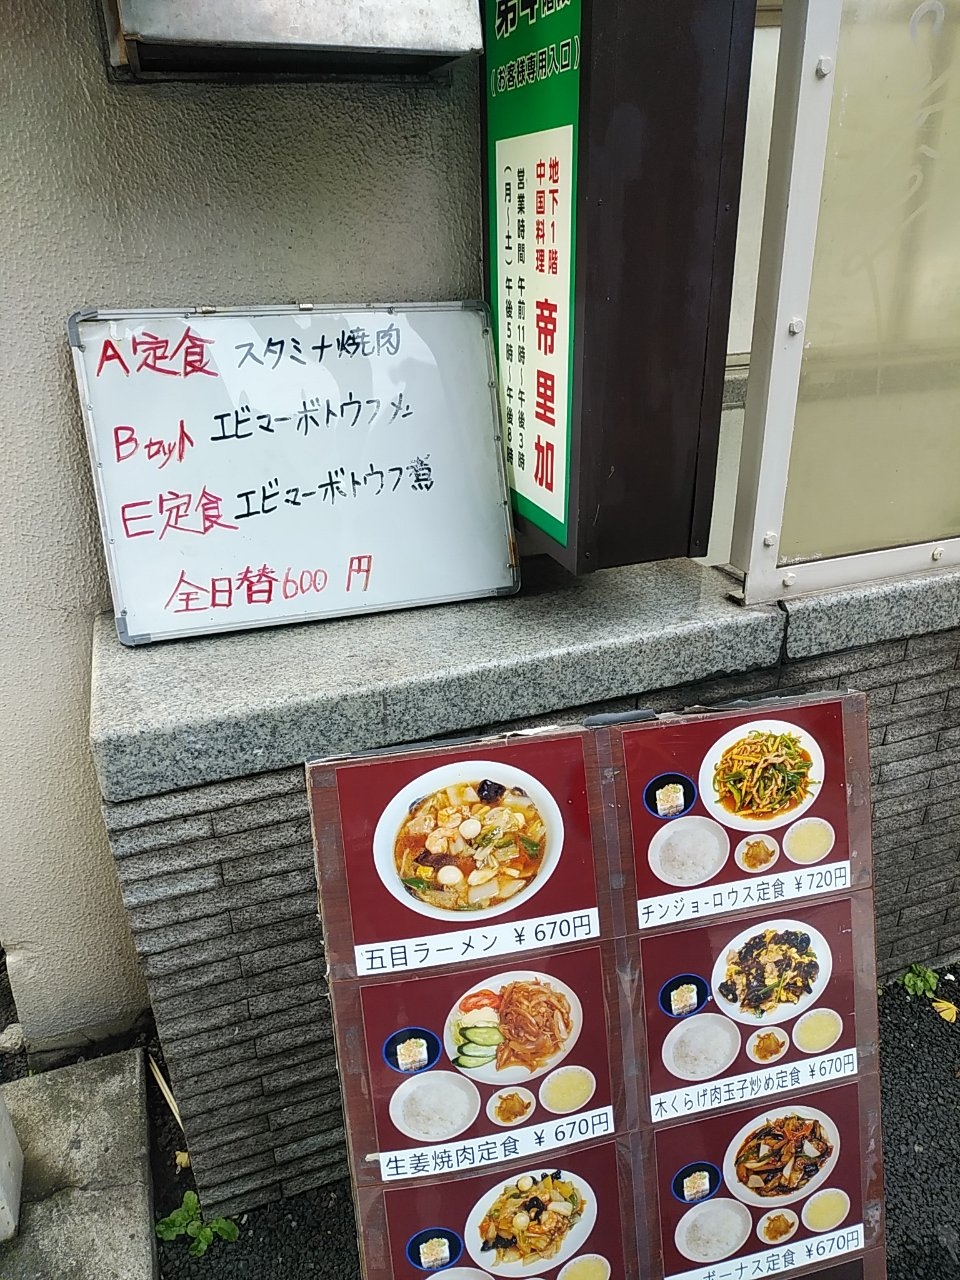 (お客様専用入口)
地下1階
中国料理 帝里加
営業時間 午前11時〜午後3時
(月〜土) 午後5時〜午後8時
A定食 スタミナ焼肉
Bセット エビマーボトウフメン
E定食 エビマーボトウフ
全日替600円
五目ラーメン ¥670円
チンジョーロウス定食 ¥720円
生姜焼肉定食 ¥670円
木くらげ肉玉子炒め定食 ¥670円
ボーナス定食 ¥670円